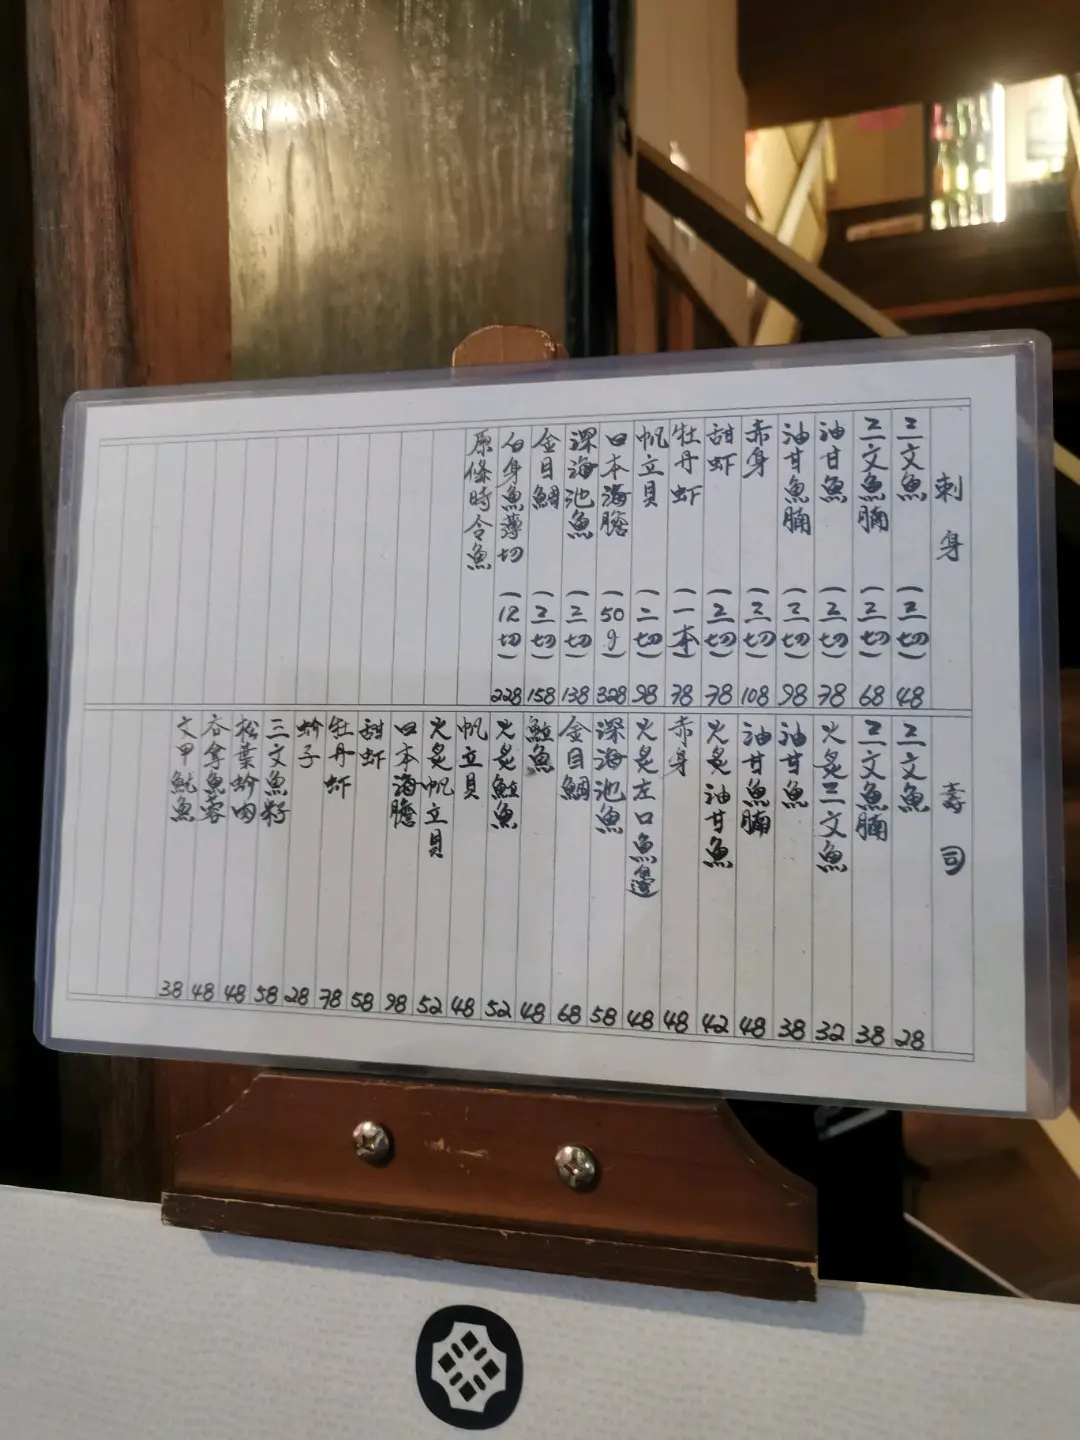 刺身
三文魚(三切)48
三文魚腩(三切)68
油甘魚(三切)78
油甘魚腩(三切)98
赤身(三切)108
甜虾(三切)78
牡丹虾(一本)78
帆立貝(二切)98
日本海膽(50g)328
深海池魚(三切)138
金目鯛(三切)158
白身魚薄切(12切)228
原條時令魚
壽司
三文魚28
三文魚腩38
火炙三文魚32
油甘魚38
油甘魚腩48
火炙油甘魚42
赤身48
火炙左口魚邊48
深海池魚58
金目鯛68
鮭魚48
火炙鮭魚52
帆立貝48
火炙帆立貝52
日本海膽98
甜虾58
牡丹虾78
蚧子28
三文魚籽58
松葉蚧肉48
吞拿魚蓉48
文甲魷魚38